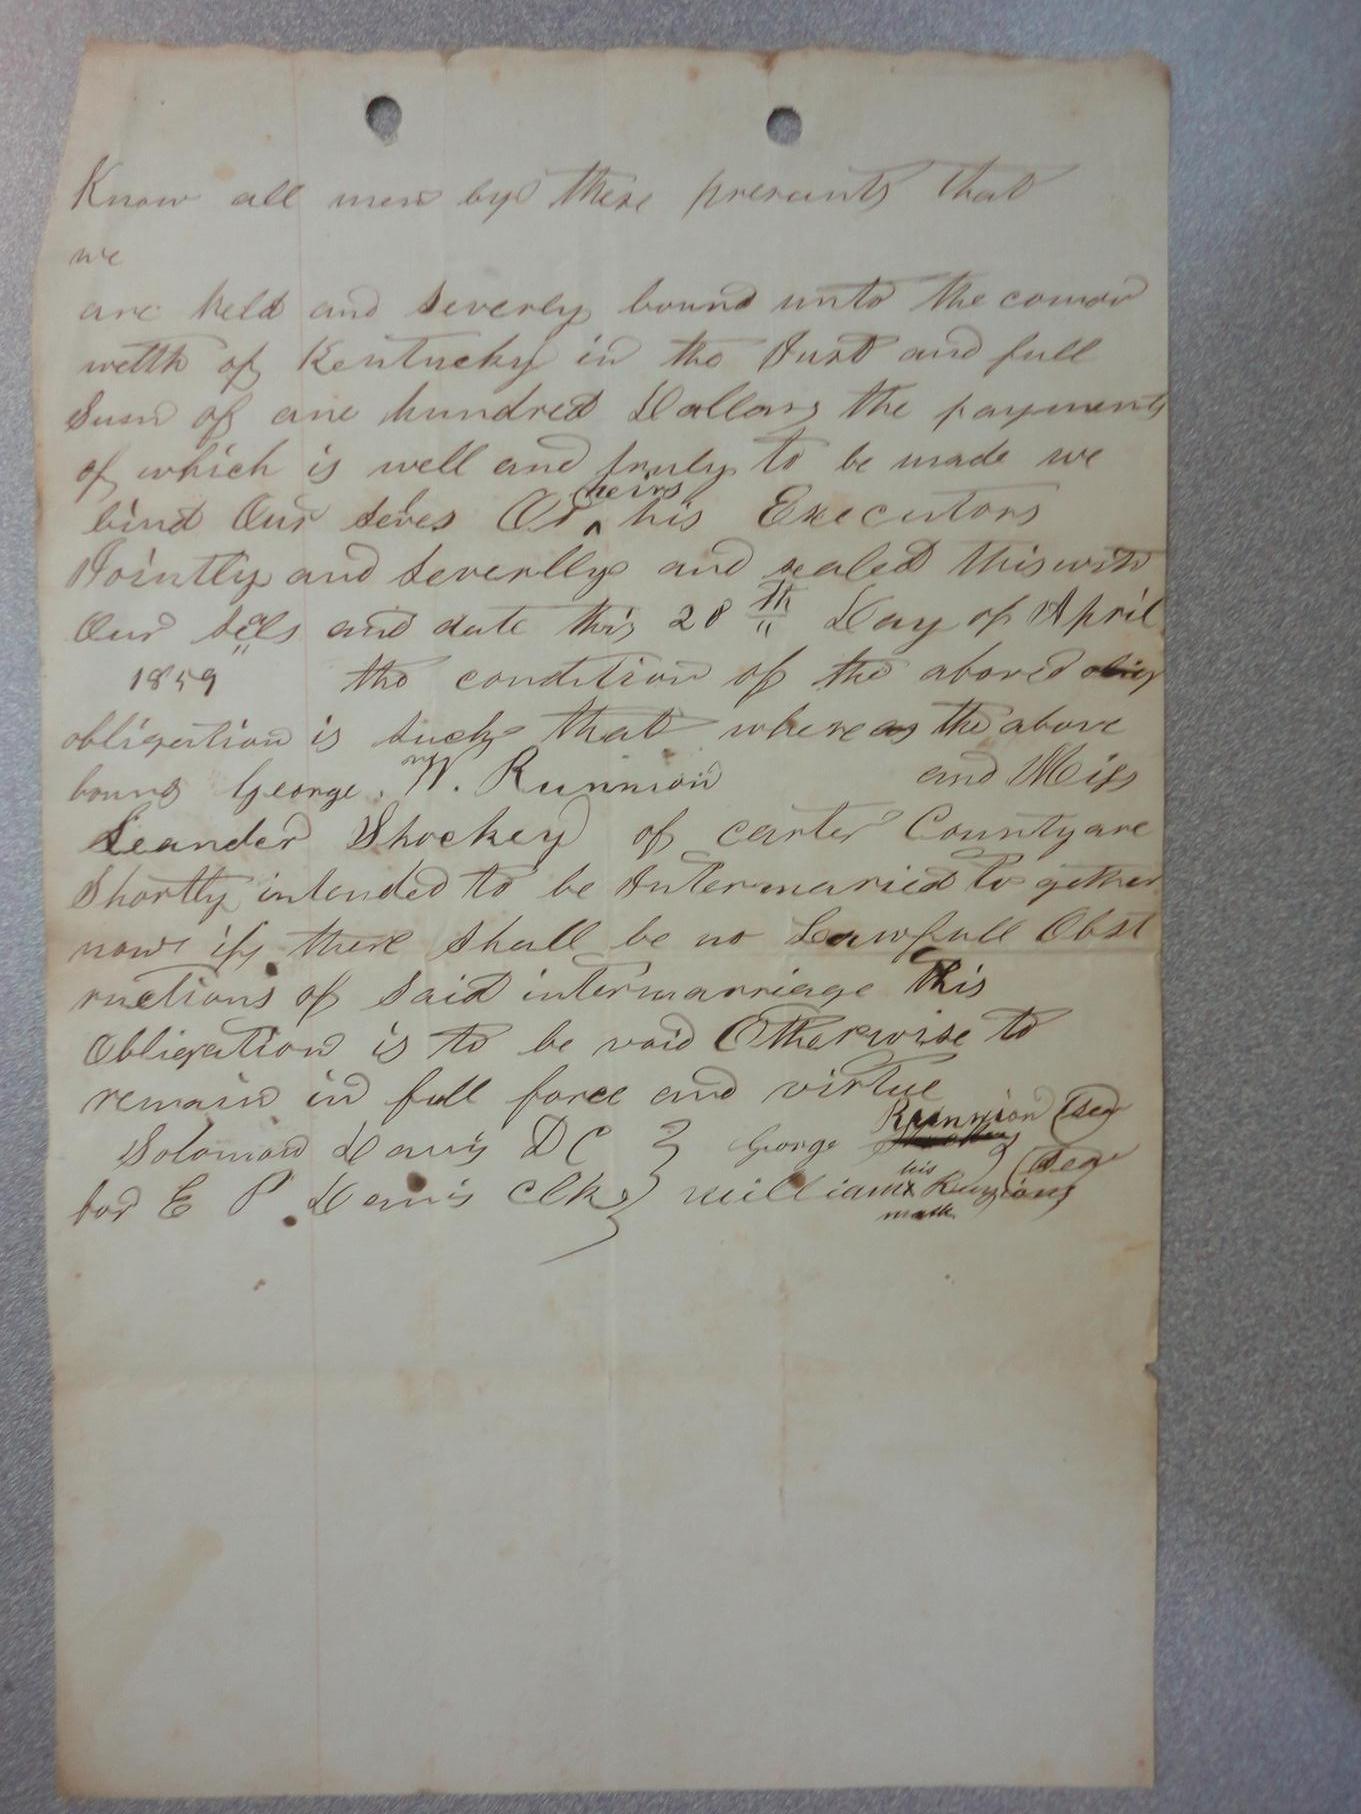 Know all men by these presants that
we
are held and severly bound unto the comon
welth of Kentucky in the Just and full
Sum of one hundred Dollars the payments
of which is well and truly to be made we
heirs
bind Our selves Or ^ his Executors
Jointly and severlly and sealed this with
Our sels and date this 28th Day of April
1859 the condition of the above
obligation is such that whereas the above
bound George W. Runnion and Miss
Leander Shockey of carter County are
Shortly intended to be Intermaried to gether
now if there shall be no Lawfull Obst
ructions of Said intermarriage this
Obligation is to be void Otherwise to
remain in full force and virtue
Solomon Davis DC } George Runnion (Seal
his
for E P Davis Clk } William x Runyions (Seal
mark